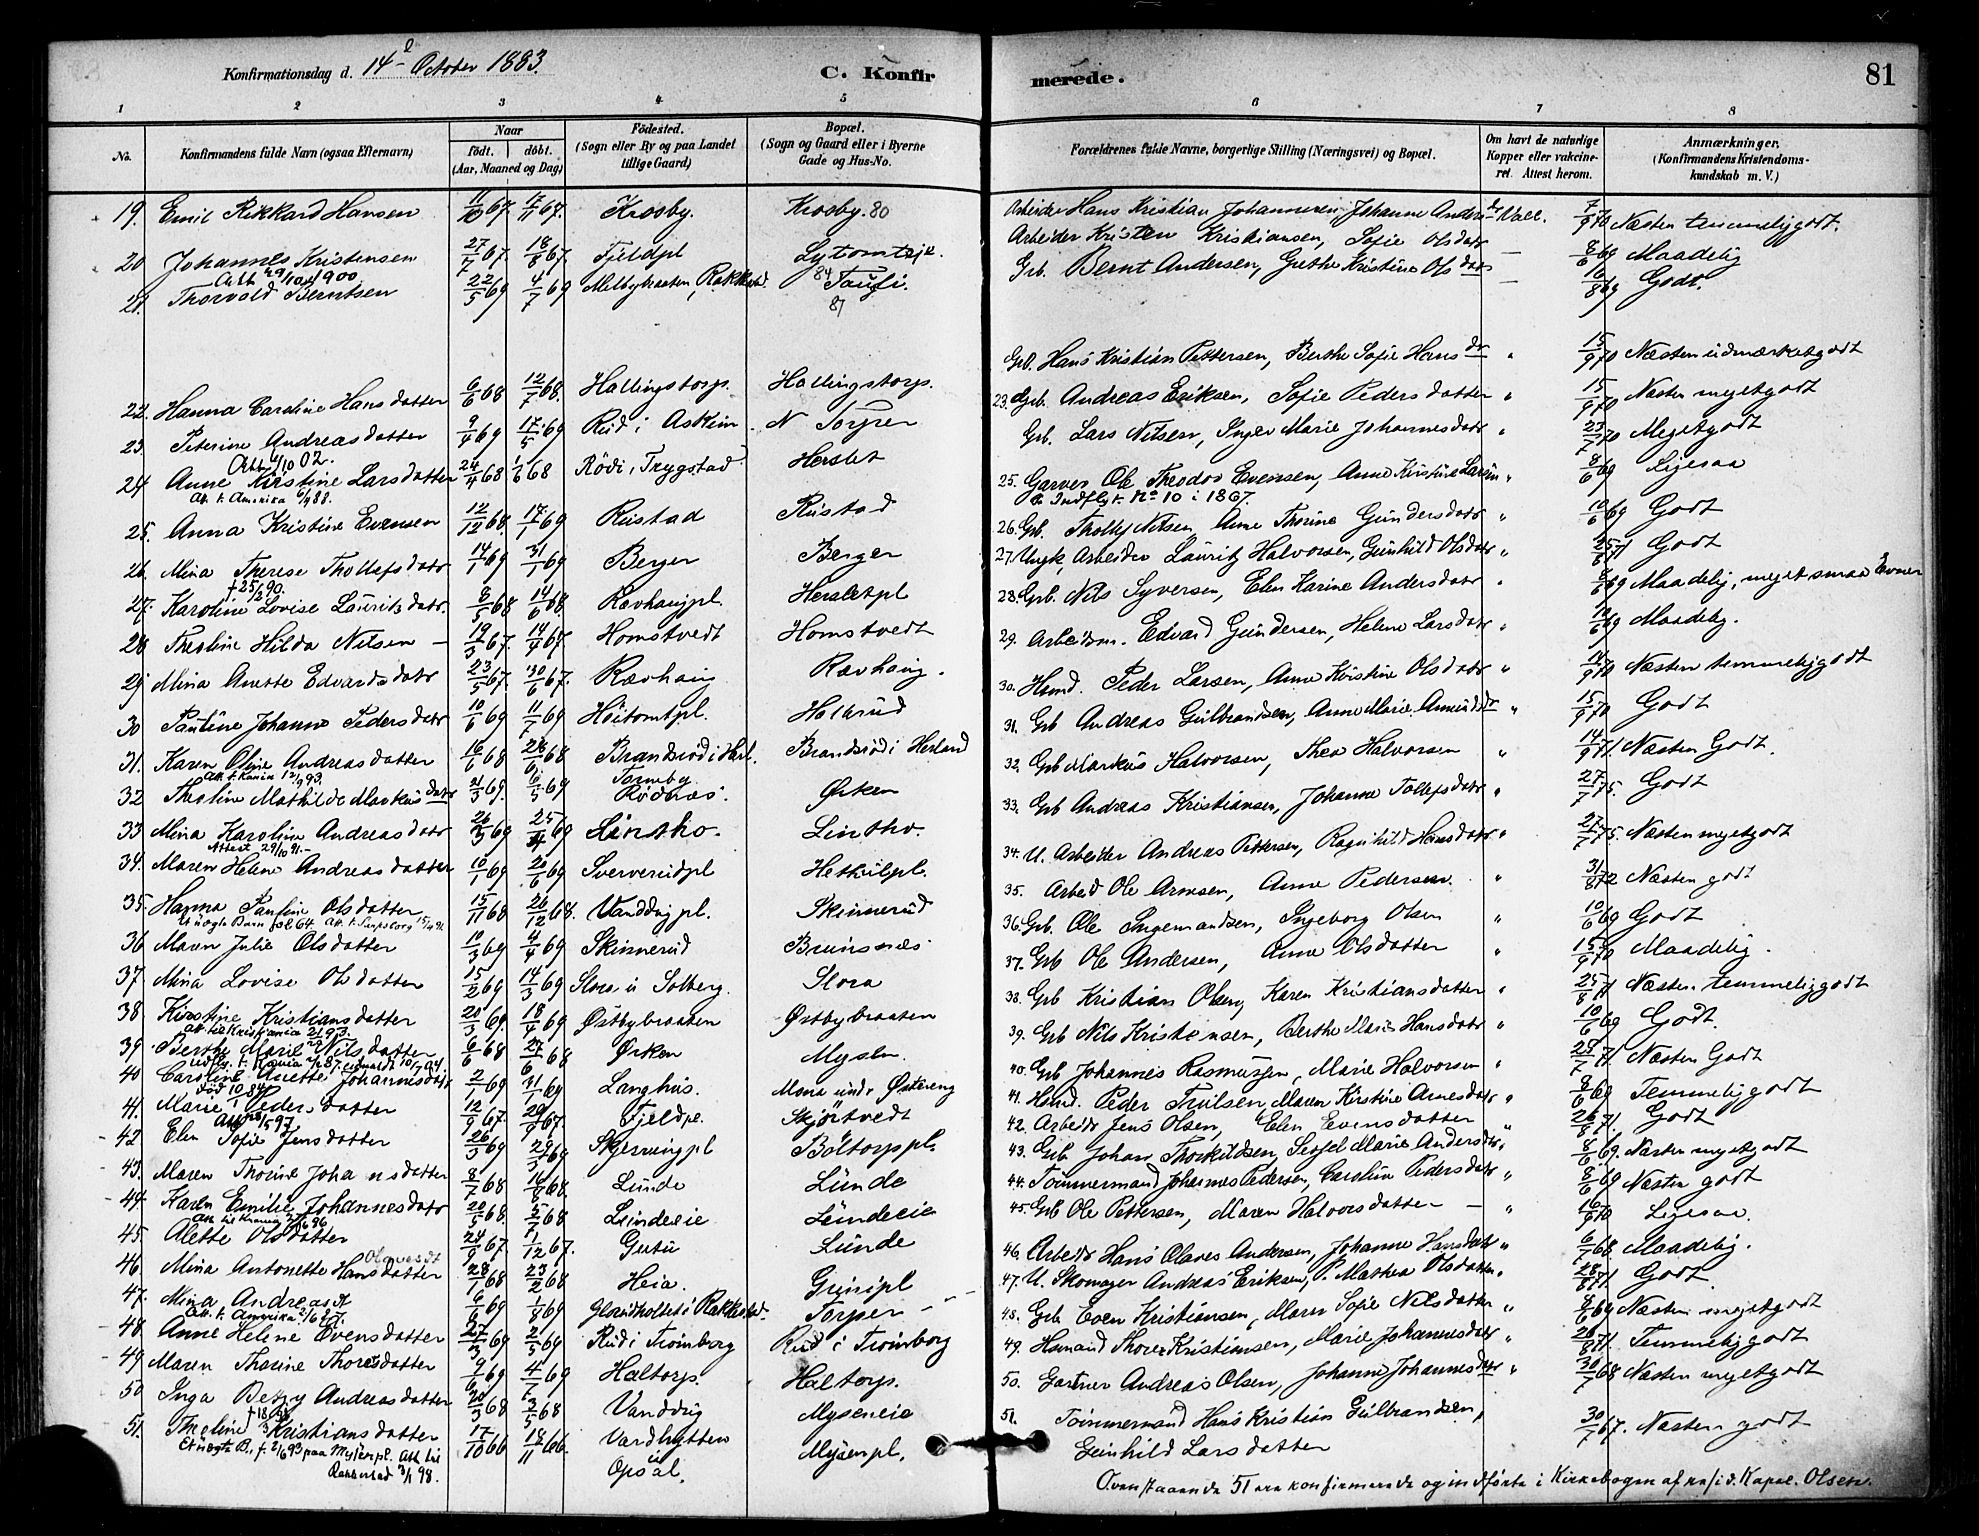 Konfirmationsdag d. 14de October 1883.
C. Konfirmerede.
81
1 2 3 4 5 6 7 8
No. Konfirmandens fulde Navn (ogsaa Efternavn) Naar født. døbt. (Aar, Maaned og Dag) Fødested. (Sogn eller By og paa Landet tillige Gaard) Bopæl. (Sogn og Gaard eller i Byerne Gade og Hus-No. Forældrenes fulde Navne, borgerlige Stilling (Næringsvei) og Bopæl. Om havt de naturlige Kopper eller vakcineret. Attest herom. Anmærkninger. (Konfirmandens Kristendomskundskab m. V.)
19. Emil Rikkard Hansen 11/10 67. 7/11 67. Krosby. Krosby. 80 Arbeider Hans Kristian Johannesen, Johanne Andersdr Vacc. 7/9 70 Næsten temmelig godt.
20 Johannes Kristensen 27/7 67. 18/8 67. Fjeldpl Arbeider Kristen Kristiansen, Sofie Olsdatr — 8/6 69 Maadelig
Att 29/10 1900.
21. Thorvald Berntsen 22/5 69 4/7 69 Melbybraaten, Rakkestad. 84 Grb. Bernt Andersen, Grethe Kristine Olsdatr — Godt.
81
22. Hanna Caroline Hansdatter 6/6 68 12/7 68. Hallingstorp. Hallingstorp. Grb. Hans Kristian Pettersen, Berthe Sofie Hansdr " 15/9 70 Næsten udmærket godt
23. Peterine Andreasdatter 9/4 69 17/5 69 Rud i Askim N Torper 23. Grb. Andreas Eriksen, Sofie Pedersdatter " 15/9 70 Næsten meget godt
24 Anne Kristine Larsdatter 24/4 68 68 Rödi, Trygstad Herslet Grb. Lars Nilsen, Inger Marie Johannesdatr " 23/7 70 Meget godt
Att. t. Amerika 88.
25. Anna Kristine Evensen 12/12 68. 17/1 69 Rustad Rustad 25. Garver Ole Theodor Evensen, Anne Kristine Larsen " 8/6 69 Ligesaa
Indflyt. No 10 i 1867.
26. Mina Therese Thollefsdatr 14/1 69 31/1 69 Berger Berger 26. Grb. Thollef Nilsen, Anne Thorine Gundersdatr " 10/6 69 Godt
† 25/2 90.
27. Karoline Lovise Lauritsdatr. 8/5 68 14/6 68. Ravhaugpl. Hersletpl 27. Ungk, Arbeider Lauritz Halvorsen, Gunhild Olsdatr " Godt
28 Thorline Hilda Nilsen — 19/3 67. 14/4 67. Homstvedt Homstvedt 28. Grb. Nils Syversen, Elen Karine Andersdatr " 69 Maadelig, meget smaa Evner
29 Mina Anette Edvardsdatr 23/5 67. 30/6 67. Ravhaug Ravhaug. 29. Arbeidsm. Edvard Gundersen, Helene Larsdatr " 10/6 69 Maadelig.
30 Pauline Johanne Pedersdatr 10/6 69 11/7 69 Höitomtpl. Holbrud 30. Hsmd. Peder Larsen, Anne Kristine Olsdatr " 14/9 70 Næsten temmelig godt
31. Karen Oline Andreasdatter 16/6 68 28/6 68 Brandsrud i Herl. Brandsrud i Herland 31. Grb Andreas Gulbrandsen, Anne Marie Amundsdr " 15/9 70 Godt
Att. t. Kania 12/9 93.
32 Thestine Mathilde Markusdatr 21/3 69. 6/5 69 Tomeby Rödenæs. Ørken 32. Grb Markus Halvorsen, Thea Halvorsen " 14/9 71. Næsten Godt.
33 Mina Karoline Andreasdatr 26/3 69 25/4 69 Lintho. Lintho. 33. Grb Andreas Kristiansen, Johanne Tollefsdatr " 27/7 75. Godt
Attest 29/10 91.-
34. Maren Helene Andreasdatter 10/1 69 20/6 69 Sververudpl Hethulpl. 34. U. Arbeider Andreas Pettersen, Ragnhild Hansdatr " 27/7 75. Næsten meget godt
35. Hanna Pauline Olsdatter 15/11 68 26/12 68. Vanddugpl. Skinnerud 35. Arbeid Ole Arnesen, Anne Pedersen. " 31/8 72 Næsten godt
Uægte Barn fol 64. Att. t. Sarpsborg 15/4 91.
36 Maren Julie Olsdatter 10/3 69 4/4 69 Skinnerud Brunsnæs 36. Grb. Ole Ingemandsen, Ingeborg Olsen " 10/6 69 Godt
37. Mina Lovise Olsdatter 15/2 69 14/3 69 Slora u Solberg. Slora 37. Grb Ole Andersen, Anne Olsdatter " 15/9 70 Maadelig.
38 Kirstine Kristiansdatter 20/3 69. 18/4 69 Østbybraaten Østbybraaten 38. Grb Kristian Olsen, Karen Kristiansdatter " 25/8 71 Næsten temmelig godt
Att til Kristiania 93.
39 Berthe Marie Nilsdatter 6/6 68 27/6 68 Ørken Mysen. 39. Grb Nils Kristensen, Berthe Marie Hansdatr " 10/6 69 Godt.
40 Caroline Anette Johannesdatr 2/1 69 31/1 69 Langhus. Mona undr Østereng 40. Grb Johannes Rasmussen, Marie Halvorsen " Næsten Godt
41. Marie Pedersdatter 12/9 67. 29/9 67. Fjeldpl. Skjörtvedt 41. Hsmd. Peder Trulsen, Maren Kirstine Arnesdatr " 8/6 69 Temmelig godt
42. Elen Sofie Jensdatter 26/3 69 69 Skjerringpl Böltorppl. 42. Arbeidr Jens Olsen, Elen Evensdatter " 26/8 71. Godt
43. Maren Thorine Johansdatter 8/7 68 16/8 68. Lunde Lunde 43. Grb Johan Thorkildsen, Sissel Marie Andersdatr 8/6 69. Næsten meget godt
44. Karen Emilie Johannesdatr 20/5 68. 5/7 68 Lundeeie Lundeeie 44. Tømmermand Johannes Pedersen, Caroline Pedersdatr " 8/6 69 Næsten godt
45. Alette Olsdatter 24/9 67. 1/12 67. Gutu Lunde 45. Grb Ole Pettersen, Maren Halvorsdatter — " 16/9 70 Ligesaa.
46. Mina Antonette Hansdatter Olavesdt 28/1 68 23/2 68 Heia. Grinipl 46. Arbeidr Hans Olaves Andersen, Johanne Hansdatr " 6/7 68 Maadelig.
47. Mina Andreasdt 6/3 69 1/8 69 i Rakkestad. Torper 47. U. Skomager Andreas Eriksen, P. Mathea Olsdatter " 28/8 71 Godt
Att. t. Amerika
48. Anne Helene Evensdatter 27/3 69 2/5 69 Rud i Trömborg Rud i Trömborg 48. Grb Even Kristiansen, Maren Sofie Nilsdatter " 69 Næsten meget godt
49 Maren Thorine Thoresdatter 9/6 69 4/7 69 Haltorp. Haltorp. 49. Hsmand Thore Kristiansen, Marie Johannesdatr " 26/8 71 Temmelig godt
50 Inga Betsy Andreasdatter 20/3 68 3/5 68 Vanddug Myseneie 50. Gartner Andreas Olsen, Johanne Johannesdatr " 30/7 68 Næsten meget godt
51. Theline Kristiansdatter 17/10 66 18/11 66. Vardhytten u Opsal. Mysenpl. 51. Tømmermand Hans Kristian Gulbrandsen, Gunhild Larsdatter 30/7 67. Næsten godt
Et uægte B. f. 2/6 93 paa Mysenpl. Att til Rakkestad 3/1 98.
Ovenstaaende 51 ere konfirmerede og indførte i Kirkebogen af res. Kapel. Olsen.